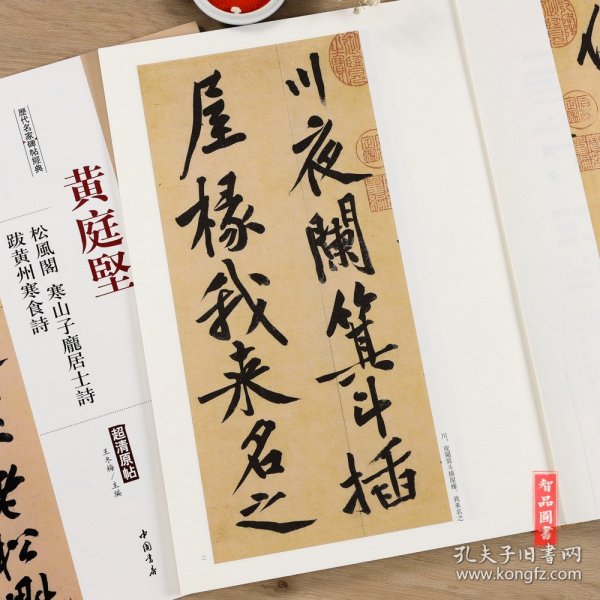 川夜闌箕斗插
屋椽我来名之
川，夜闌箕斗插屋椽。我来名之
歷代名家碑帖經典
黄庭堅
松風閣 寒山子龐居士詩
跋黄州寒食詩
超清原帖
王冬梅／主編
中国書店
老松魁
智品圖書
孔夫子旧书网
www.kongfz.com